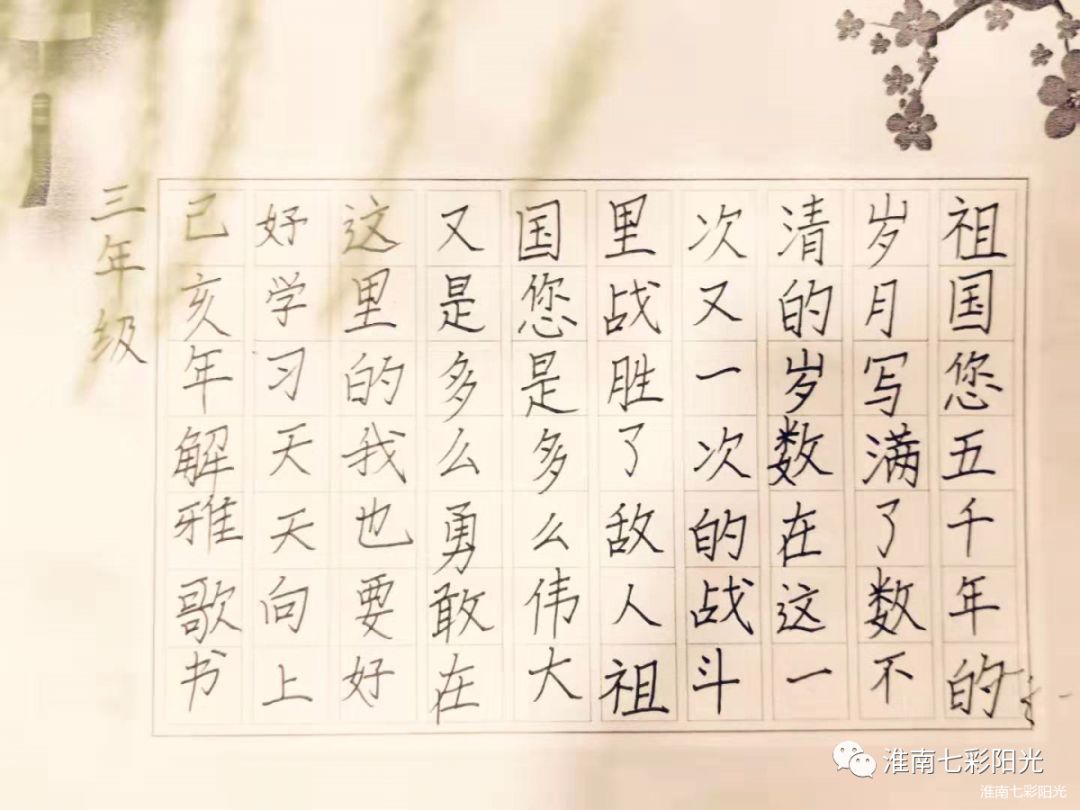 祖国您五千年的
岁月写满了数不
清的岁数在这一
次又一次的战斗
里战胜了敌人祖
国您是多么伟大
又是多么勇敢在
这里的我也要好
好学习天天向上
己亥年解雅歌书
三年级
淮南七彩阳光
淮南七彩阳光